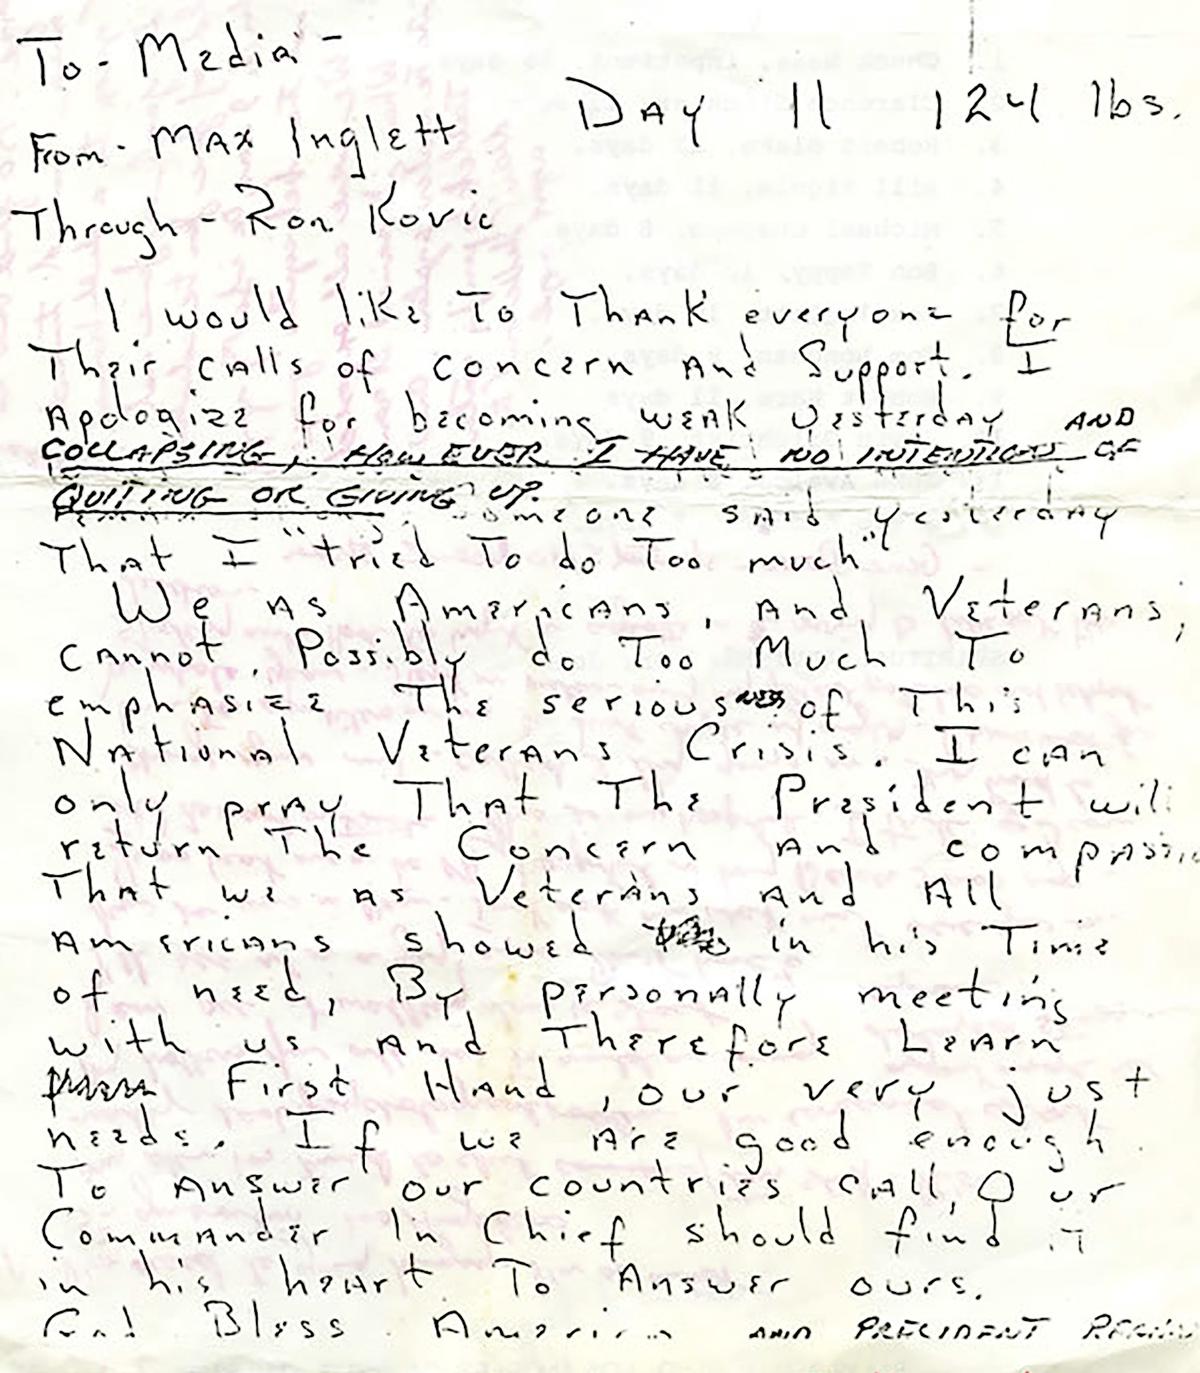 To - Media -
DAY 11 124 lbs.
From - MAX Inglett
Through - Ron Kovic
I would like To Thank everyone for
Their calls of concern and Support. I
Apologize for becoming weak yesterday AND
COLLAPSING, HOWEVER I HAVE NO INTENTIONS OF
QUITING OR GIVING UP.
someone said yesterday
That I "tried To do Too much"
We as Americans, and Veterans,
cannot Possibly do Too Much To
emphasize The seriousness of This
National Veterans Crisis. I can
only pray That The President will
return The Concern and compassion
That we as Veterans and All
Americans showed in his Time
of need, By personally meeting
with us and Therefore Learn
First Hand, our very just
needs. If we are good enough
To answer our countries call, Our
Commander In Chief should find it
in his heart To Answer ours.
God Bless America AND PRECIDENT REAGAN